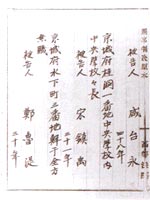 被告人 咸台永
四十八年
京城府桂洞一番地中央學校内
中央學校々長
被告人 宋鎭禹
三十一年
京城府水下町三番地鮮于全方
無職
被告人 鄭魯湜
三十年